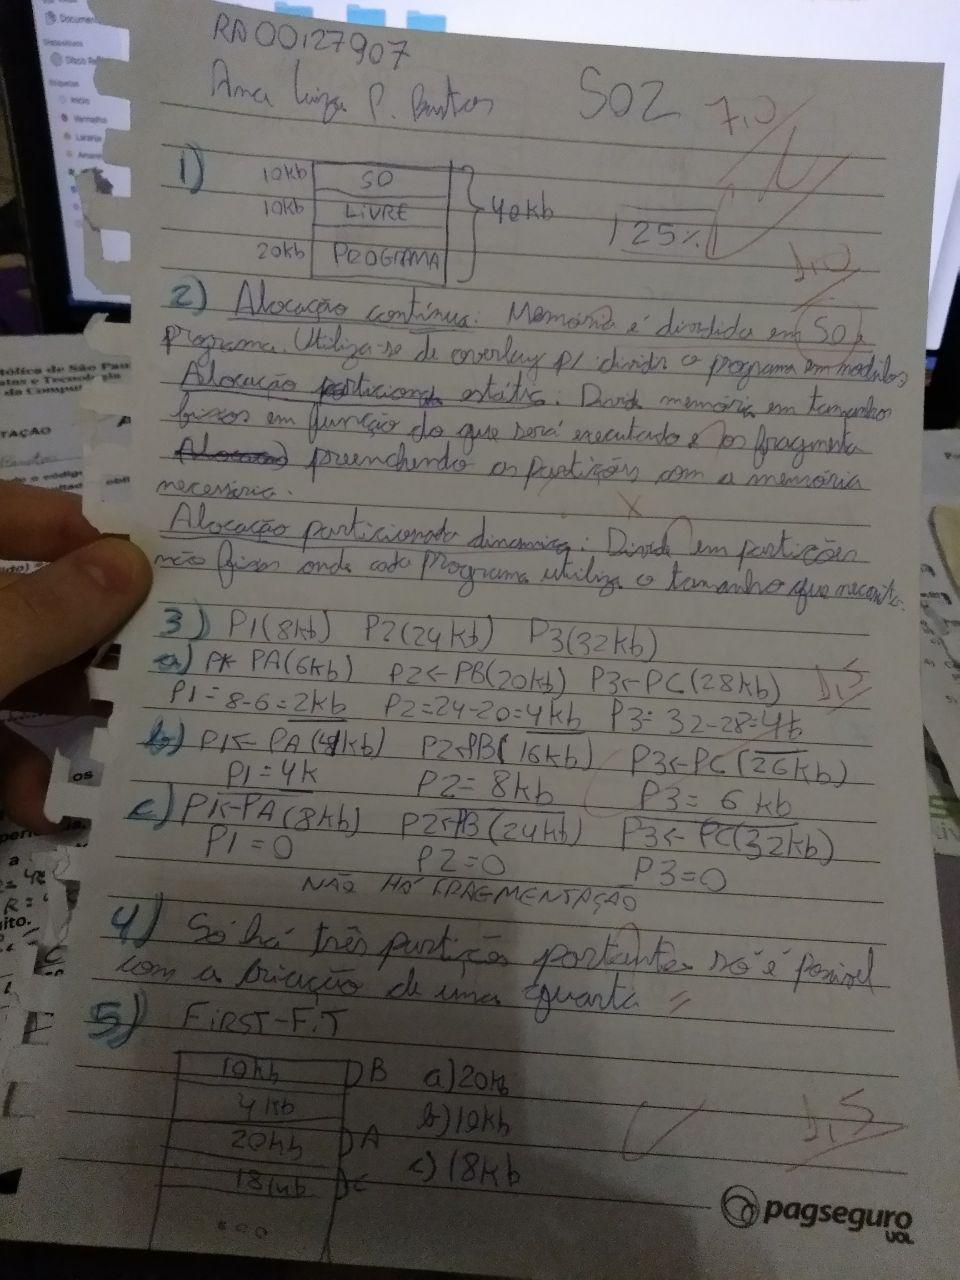 RA00127907
Ana Luiza P. SO2 7,0
1) 10kb SO
10kb LIVRE 40kb 25%
20kb PROGRAMA 1,0
2) Alocação contínua: Memória é dividida em SO e
programa. Utiliza-se de overlay p/ dividir o programa em modulos
Alocação particionada estática: Divide memória em tamanhos
fixos em função do que será executado e os fragmenta
preenchendo as partições com a memória
necessária.
Alocação particionada dinamica: Divide em partições
não fixas onde cada Programa utiliza o tamanho que necessita.
3) P1(8kb) P2(24kb) P3(32kb)
a) PA(6kb) P2<-PB(20kb) P3<-PC(28kb) 1,5
P1=8-6=2kb P2=24-20=4kb P3=32-28=4k
b) P1<-PA(4kb) P2<PB(16kb) P3<-PC(26kb)
P1=4k P2=8kb P3=6kb
c) P1<-PA(8kb) P2<-PB(24kb) P3<-PC(32kb)
P1=0 P2=0 P3=0
NÃO HÁ FRAGMENTAÇÃO
4) Só há três partições portanto só é possível
com a criação de uma quarta
5) FIRST-FIT
10kb B a) 20kb
4kb b) 10kb 1,5
20kb A c) 18kb
18kb C
pagseguro
UOL